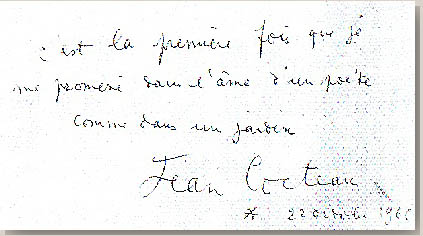 c'est la première fois que je
me promène dans l'âme d'un poète
comme dans un jardin
Jean Cocteau
* 22 octobre 196